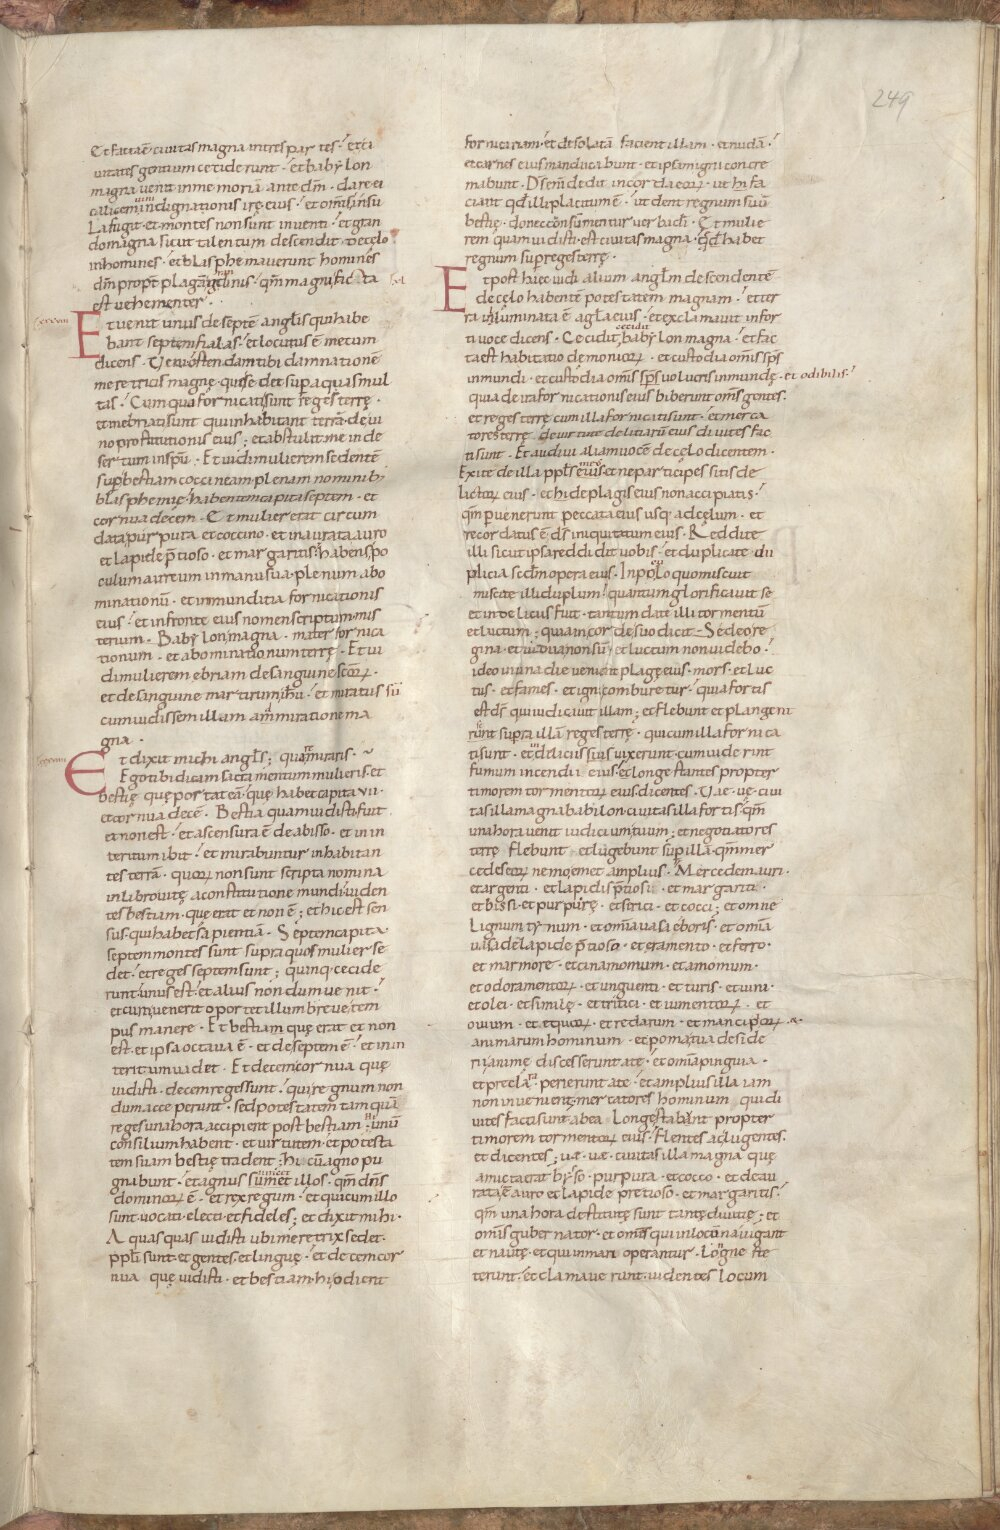 249
Et facta ē civitas magna in tres partes ⁊ et ci
vitates gentium ceciderunt ⁊ et babylon
magna venit in memoriā ante dm̄ · dare ei
calicem vini indignationis irę eius ⁊ et om̄is insu
la fugit · et montes non sunt inventi ⁊ et gran
do magna sicut talentum descendit · de cęlo
in homines · et blasphemaverunt homines
dm̄ propt̄ plagā grandinis · qm̄ magna facta
est vehementer ·
Et venit unus de septē angl̄is qui habe
bant septem fialas · et locutus ē mecum
dicens · Veni ostendam tibi damnationē
meretricis magnę · quę sedet sup aquas mul
tas ⁊ Cum qua fornicati sunt reges terrę ·
et inebriati sunt qui inhabitant terrā de vi
no prostitutionis eius ; et abstulit me in de
sertum in spū · Et vidi mulierem sedentē
super bestiam coccineam plenam nominib;
blasphemię · habentem capita septem · et
cornua decem · Et mulier erat circum
data purpura et coccino · et inaurata auro
et lapide p̄tioso · et margaritis · habens po
culum aureum in manu sua plenum abo
minationū · et inmunditia fornicationis
eius ⁊ et in fronte eius nomen scriptum mis
terium · Babylon magna · mater fornica
tionum · et abominationum terrę · Et vi
di mulierem ebriam de sanguine sc̄orꝝ ·
et de sanguine martirum ih̄u ⁊ et miratus sū
cum vidissem illam ammiratione ma
gna ·
Et dixit michi angl̄s ; quare miraris ·
Ego tibi dicam sacramentum mulieris · et
bestię quę portat eā · quę habet capita vii ·
et cornua decē · Bestia quam vidisti fuit
et non est ⁊ et ascensura ē de abisso · et in in
teritum ibit ⁊ et mirabuntur inhabitan
tes terrā · quorꝝ non sunt scripta nomina
in libro vitę a constitutione mundi · viden
tes bestiam · que erat et non ē ; et hic est sen
sus · qui habet sapientiā · Septem capita ·
septem montes sunt supra quos mulier se
det · et reges septem sunt ; quinq; cecide
runt · unus est · et alius nondum venit ⁊
et cum venerit oportet illum breve tem
pus manere · Et bestiam quę erat et non
est · et ipsa octava ē · et de septem ē ⁊ et in in
teritum vadet · Et decem cornua quę
vidisti · decem reges sunt ⁊ qui regnum non
dum acceperunt · sed potestatem tamquā
reges una hora accipient post bestiam ; hi unū
consilium habent · et virtutem et potesta
tem suam bestię tradent ; hi cū agno pu
gnabunt ⁊ et agnus vincet illos · qm̄ dn̄s
dominorꝝ ē · et rex regum ⁊ et qui cum illo
sunt vocati electi et fideles ; et dixit mihi ·
Aquas quas vidisti ubi meretrix sedet ·
ppl̄i sunt · et gentes · et linguę ⁊ et decem cor
nua quę vidisti · et bestiam · hi odient
fornicariam · et desolatā facient illam · et nudā ⁊
et carnes eius manducabunt · et ipsam igni concre
mabunt · Ds̄ enī dedit in corda eorꝝ · ut hi fa
ciant qd̄ illi placitum ē ⁊ ut dent regnum suū
bestię · donec consūmentur verba dī · Et mulie
rem quam vidisti · est civitas magna · quę habet
regnum sup reges terrę ·
Et post hęc vidi alium angl̄m descendentē
de cęlo habentē potestatem magnam ⁊ et ter
ra illuminata ē a gla eius ⁊ et exclamavit in for
ti voce dicens · Cecidit cecidit babylon magna ⁊ et fac
ta est habitatio demoniorꝝ · et custodia omīs sps̄
inmundi · et custodia omīs sps̄ volucris inmundę · et odibilis ⁊
quia de ira fornicationis eius biberunt omn̄s gentes ·
et reges terrę cum illa fornicati sunt ⁊ et merca
tores terrę de virtute delitiarū eius divites fac
ti sunt · Et audivi aliam vocē de cęlo dicentem ·
Exite de illa ppl̄s meus · et ne participes sitis de
lictorꝝ eius · et hi de plagis eius non accipiatis ⁊
qm̄ pervenerunt peccata eius usq; ad cęlum · et
recordatus ē ds̄ iniquitatum eius · Reddite
illi sicut ipsa reddidit vobis ⁊ et duplicate du
plicia scd̄m opera eius · In poculo quo miscuit
miscete illi duplum ⁊ quantum glorificavit se
et in deliciis fuit · tantum date illi tormentū
et luctum ; quia in corde suo dicit · Sedeo re
gina · et vidua non sū ⁊ et luctum non videbo ⁊
ideo in una die venient plagę eius · mors · et luc
tus · et fames · et igni comburetur ⁊ quia fortis
est ds̄ qui iudicavit illam ; et flebunt et plangent
supra illam reges terrę · qui cum illa fornica
ti sunt · et in deliciis vixerunt · cum viderint
fumum incendii eius · et longe stantes propter
timorem tormentorꝝ eius dicentes · Vae · vę · civi
tas illa magna babilon · civitas illa fortis · qm̄
una hora venit iudicium tuum ; et negotiatores
terrę flebunt et lugebunt sup illā · qm̄ mer
cedes eorꝝ nemo emet amplius · Mercedem auri ·
et argenti · et lapidis p̄tiosi · et margariti ·
et bissi · et purpurę · et sirici · et cocci ; et omne
lignum tyinum · et omīa vasa eboris · et omīa
vasa de lapide p̄tioso · et eramento · et ferro ·
et marmore · et cinamomum · et amomum ·
et odoramentorꝝ · et unguenti · et turis · et vini ·
et olei · et similę · et tritici · et iumentorꝝ · et
ovium · et equorꝝ · et redarum · et mancipiorꝝ · &
animarum hominum · et poma tua deside
rii animę discesserunt a te · et omīa pinguia ·
et preclara perierunt a te · et amplius illa iam
non invenient mercatores hominum qui di
vites facti sunt ab ea · Longe stabant propter
timorem tormentorꝝ eius · flentes ac lugentes ·
et dicentes ; væ · væ · civitas illa magna quę
amicta erat bysso · purpura · et cocco · et deau
rata ē auro et lapide pretioso · et margaritis ⁊
qm̄ una hora destitutę sunt tantę divitię ; et
omīs gubernator · et omīs qui in locū navigant
et nautę · et qui in mari operantur · Longe ste
terunt · et clamaverunt · videntes locum